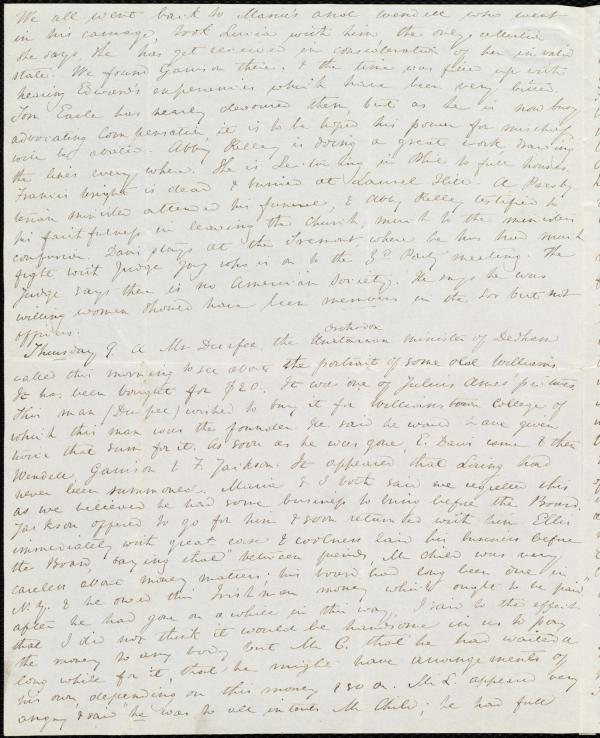 We all went back to Maria's and Wendell who went
in his carriage, took Lucia with him, the only attention
she says she has yet received in consideration of her invalid
state. We found Garrison there, & the time was filled up with
hearing Edward's experiences which have been very bitter.
Tom Earle has nearly devoured them, but as he is now busy
advocating Compensation, it is to be hoped his power for mischief
will be abated. Abby Kelley is doing a great work drawing
the lines every where. She is lecturing in Phil to full houses.
Francis Wright is dead & buried at Laurel Hill. A Presby
terian minister attended his funeral, & Abby Kelley testified to
his faithfulness in leaving the Church, much to the ministers
confusion. Davis stays at the Tremont where he has had much
fight with Judge Jay who is on to the 3d Party meeting. The
Judge says there is no American Society. He says he was
willing women should have been members in the Soc but not
officers.
Thursday 9. A Mr Durfee, the Orthodox Unitarian minister of Dedham
called this morning to see about the portrait of some old Williams
It has been bought for $20. It was one of Julius Ames' pictures
This man (Durfee) wished to buy it for Williamstown College of
which this man was the founder. He said he would have given
twice that sum for it. As soon as he was gone, E. Davis came & then
Wendell, Garrison & F. Jackson. It appeared that Laing had
never been summoned. Maria & I both said we regretted this
as we believed he had some business to bring before the Board.
Jackson offered to go for him & soon returned with him. Ellis
immediately with great ease & coolness laid his business before
the Board, saying that "between friends, Mr Child was very
careless about money matters; his board had long been due in
N.Y. & he owed this Irishman money which ought to be paid,"
after he had gone on a while in this way, I said to the effect
that I did not think it would be handsome in us to pay
the money to any body but Mr C. that he had waited a
long while for it, that he might have arrangements of
his own, depending on this money & so on. Mr L. appeared very
angry & said "he was to all intents Mr Child; he had full